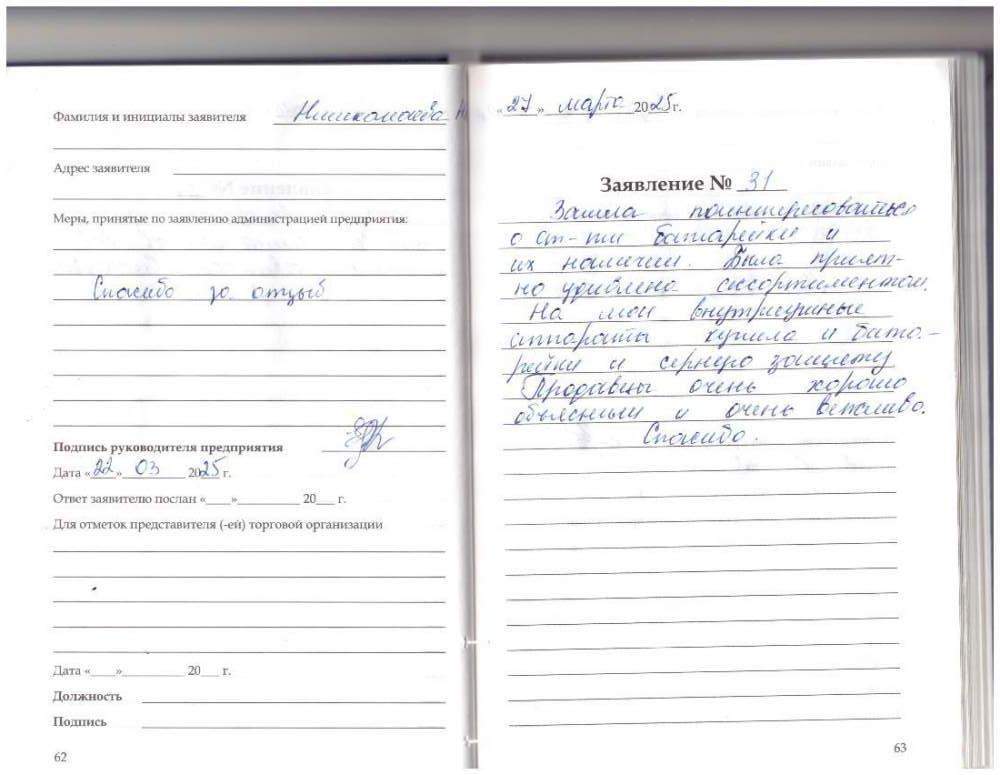 Фамилия и инициалы заявителя Николаева Н
Адрес заявителя
Меры, принятые по заявлению администрацией предприятия:
Спасибо за отзыв
Подпись руководителя предприятия
Дата «22» 03 2025 г.
Ответ заявителю послан «___»__________ 20___ г.
Для отметок представителя (-ей) торговой организации
Дата «___»__________ 20___ г.
Должность
Подпись
62
«27» марта 2025г.
Заявление № 31
Зашла поинтересоваться
о ст-ти батарейки и
их наличии. Была прият-
но удивлена ассортиментом.
На мои внутриушные
аппараты купила и бата-
рейки и серную защиту
Продавцы очень хорошо
объяснили и очень вежливо.
Спасибо.
63